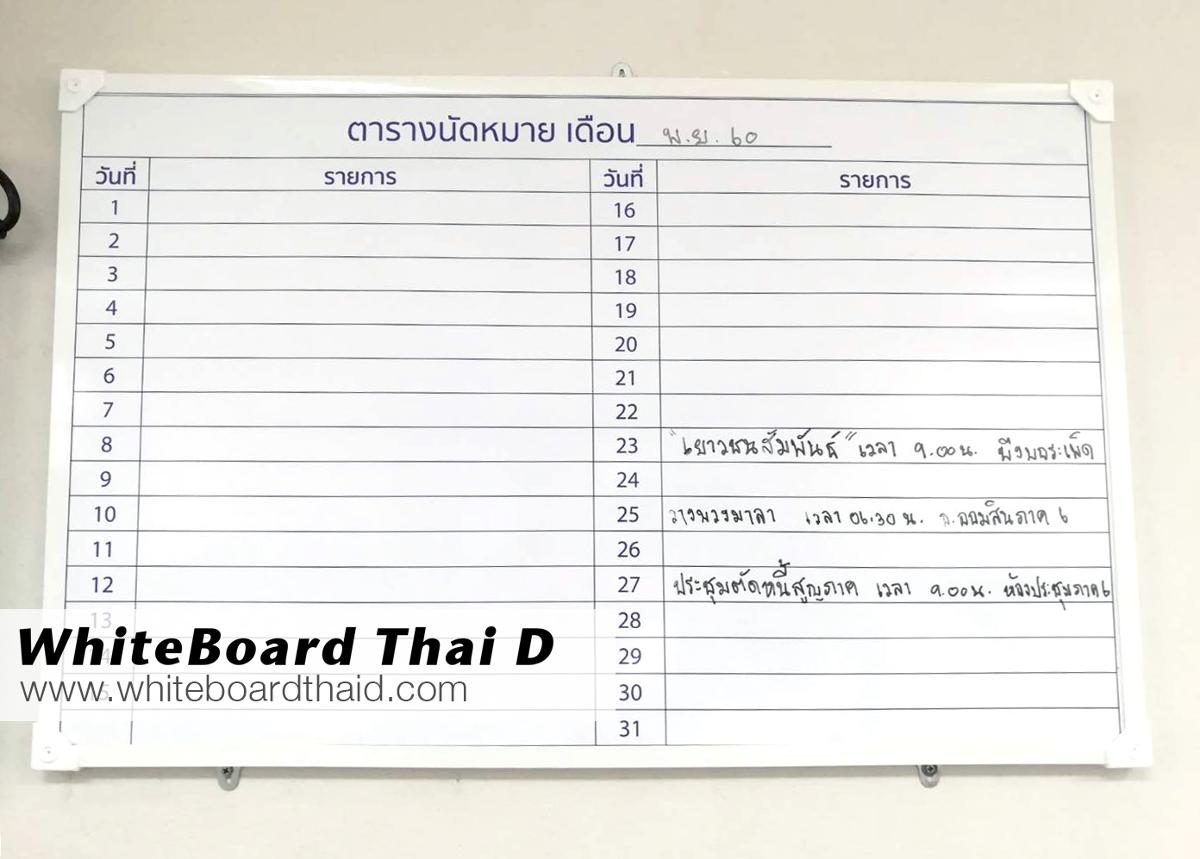 ตารางนัดหมาย เดือน พ.ย. 60
วันที่ รายการ วันที่ รายการ
1 16
2 17
3 18
4 19
5 20
6 21
7 22
8 23 "เยาวชนสัมพันธ์" เวลา 9.00 น. บึงบอระเพ็ด
9 24
10 25 วางพวงมาลา เวลา 06.30 น. ออมสินภาค 6
11 26
12 27 ประชุมตัดหนี้สูญภาค เวลา 9.00 น. ห้องประชุมภาค 6
13 28
WhiteBoard Thai D
29
www.whiteboardthaid.com
30
31